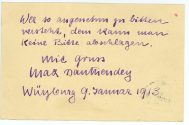 Wer so angenehm zu bitten
versteht, dem kann man
keine Bitte abschlagen.
Mit Gruss
Max Dauthendey
Würzburg 9. Januar 1913.